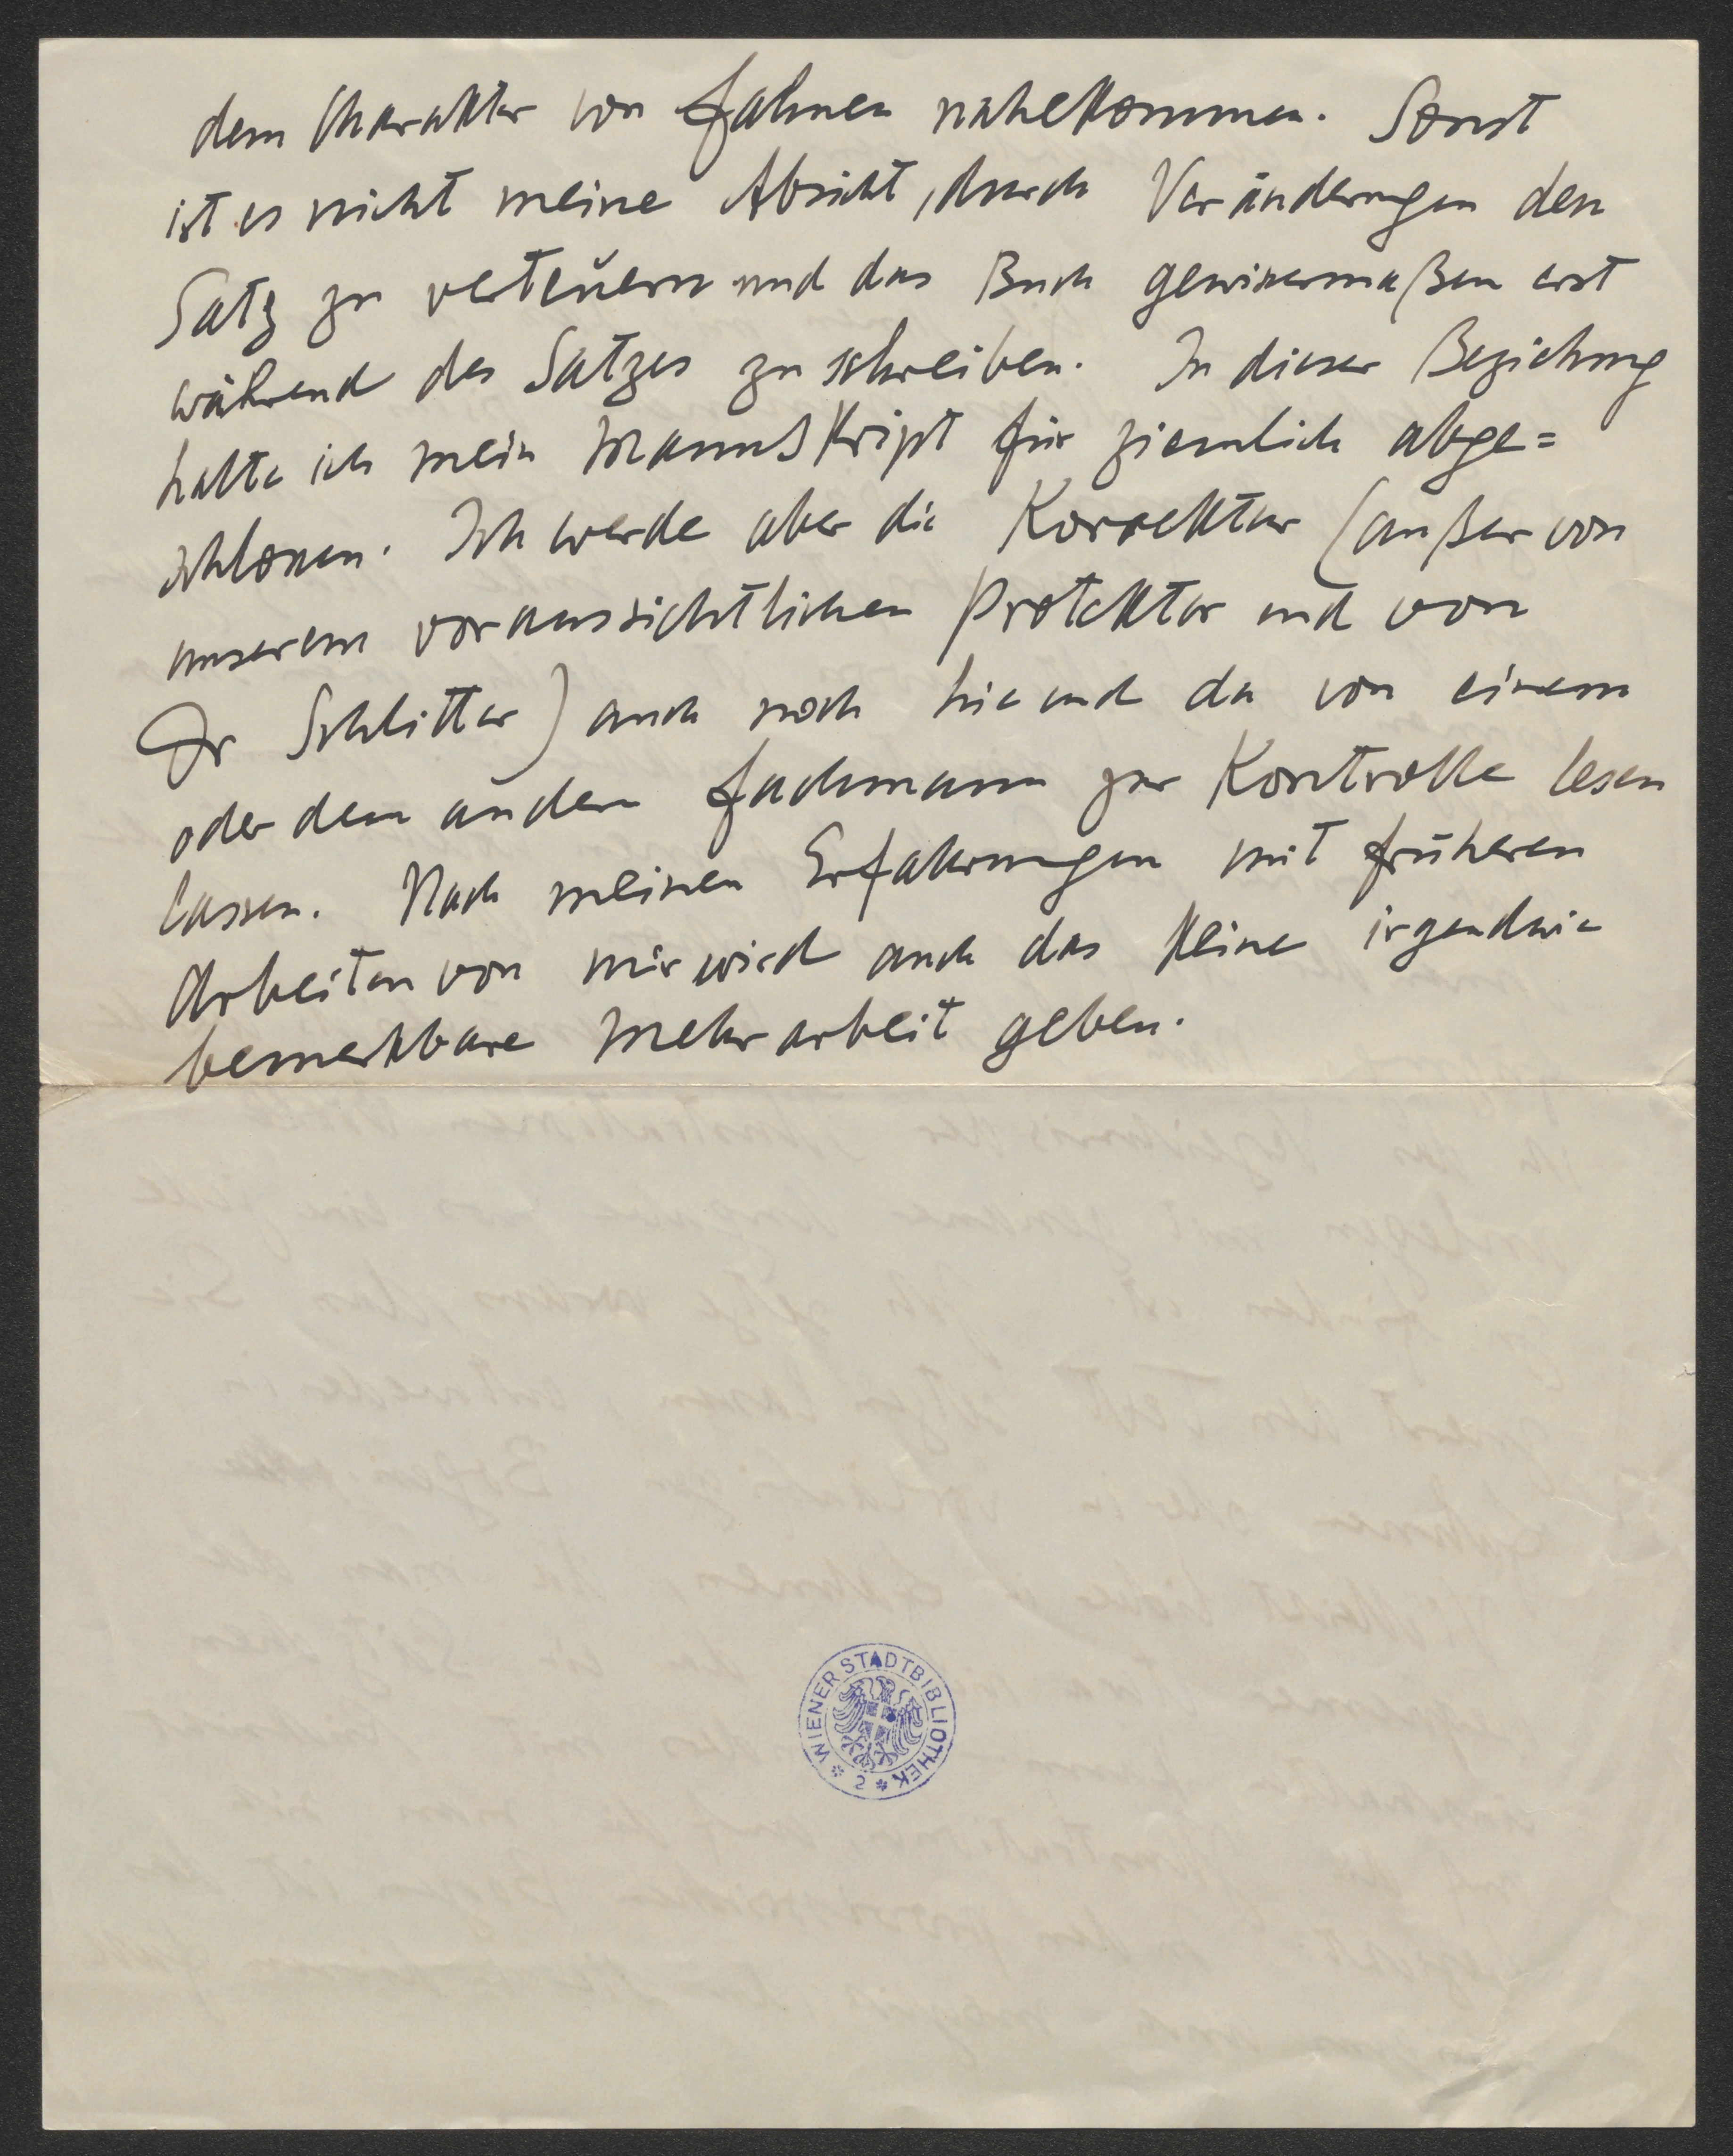 dem Charakter von Fahnen nahekommen. Sonst
ist es nicht meine Absicht, durch Veränderungen den
Satz zu verteuern und das Buch gewissermaßen erst
während des Satzes zu schreiben. In dieser Beziehung
halte ich mein Manuskript für ziemlich abge=
schlossen. Ich werde aber die Korrektur (außer von
unserem voraussichtlichen Protektor und von
Dr Schlitter) auch noch hie und da von einem
oder dem andern Fachmann zur Kontrolle lesen
lassen. Nach meinen Erfahrungen mit früheren
Arbeiten von mir wird auch das keine irgendwie
bemerkbare Mehrarbeit geben.
WIENER STADTBIBLIOTHEK
2